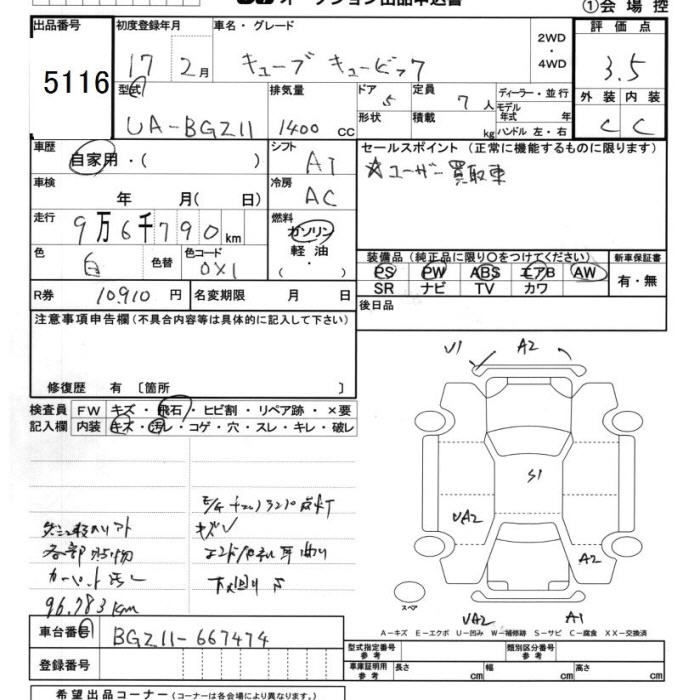 ①会場控
出品番号 初度登録年月 車名・グレード 評価点
5116 17 2月 キューブ キュービック 2WD・4WD 3.5
型式 排気量 ドア 定員 ディーラー・並行 外装 内装
UA-BGZ11 1400 cc 5 7人 モデル年式 年 C C
形状 積載 kg ハンドル 左・右
車歴 シフト セールスポイント(正常に機能するものに限ります)
自家用・( ) AT ☆ユーザー買取車
車検 冷房
年 月( 日) AC
走行 燃料
9万6千790km ガソリン
軽油
( ・ )
色 色替 色コード 装備品(純正品に限り○をつけてください) 新車保証書
白 0X1 PS PW ABS エアB AW 有・無
SR ナビ TV カワ
R券 10,910円 名変期限 月 日 後日品
注意事項申告欄(不具合内容等は具体的に記入して下さい)
修復歴 有 〔箇所 〕
V1 A2
検査員 FW キズ・飛石・ヒビ割・リペア跡・×要
記入欄 内装 キズ・汚レ・コゲ・穴・スレ・キレ・破レ
S1
UA2
A2
キズ
各部
カーペット汚レ
96.783Km
スペア
UA2 A1
A―キズ E―エクボ U―凹み W―補修跡 S―サビ C―腐食 XX―交換済
車台番号 BGZ11-667474
型式指定番号 参考 類別区分番号 参考
登録番号 車庫証明用 参考 長さ cm 幅 cm 高さ cm
希望出品コーナー(コーナーは各会場により異なります。)